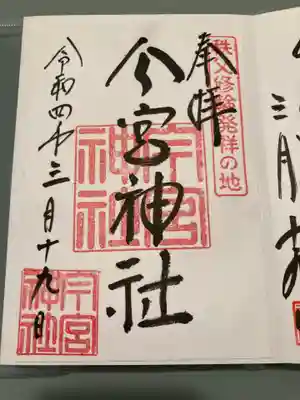 秩父修験発祥の地
奉拝
今宮神社
今宮
神社
令和四年三月十九日
今宮
神社